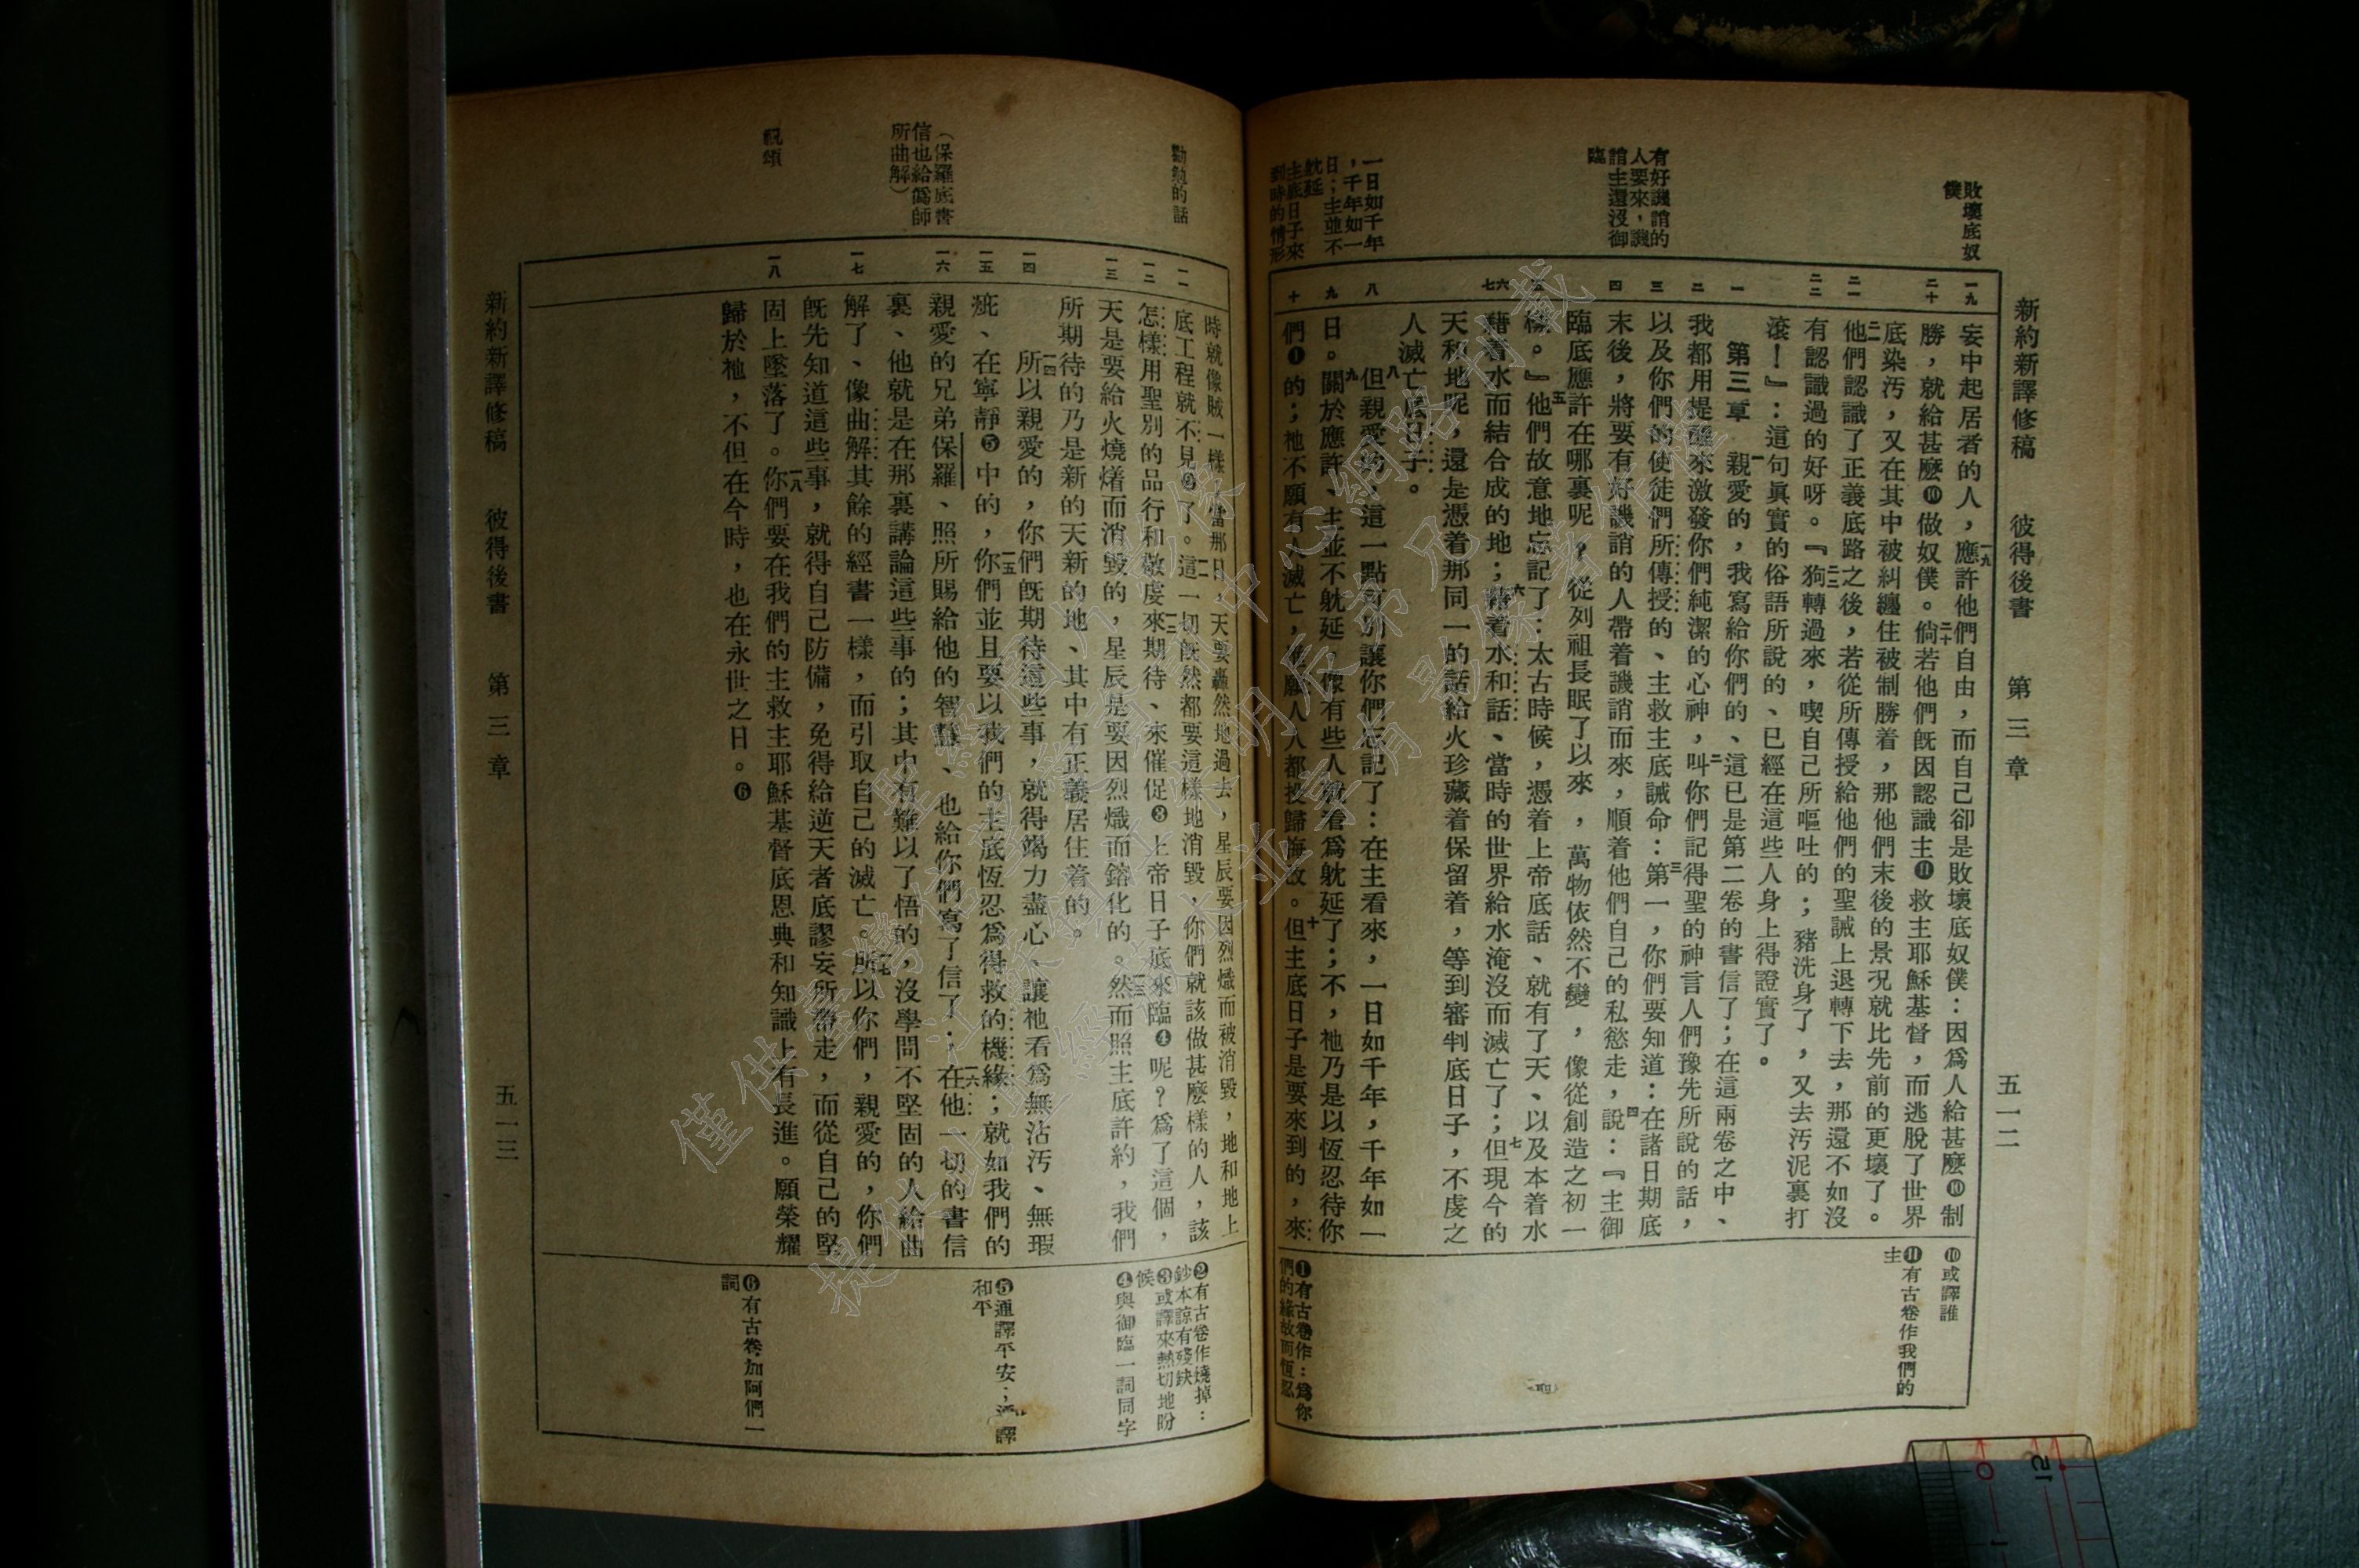 新約新譯修稿　彼得後書　第三章　五一二
敗壞底奴
僕
有好譏誚的
人要來，譏
誚主還沒御
臨
一日如千年
，千年如一
日；主並不
躭延
主底日子來
到時的情形
一九
二十
二一
二二
一
二
三
四
五
六
七
八
九
十
妄中起居者的人，一九應許他們自由，而自己卻是敗壞底奴僕：因爲人給甚麼❿制
勝，就給甚麼❿做奴僕。二十倘若他們旣因認識主⓫救主耶穌基督，而逃脫了世界
底染污，又在其中被糾纏住被制勝着，那他們末後的景況就比先前的更壞了。
二一他們認識了正義底路之後，若從所傳授給他們的聖誡上退轉下去，那還不如沒
有認識過的好呀。二二『狗轉過來，喫自己所嘔吐的；豬洗身了，又去污泥裏打
滾！』：這句眞實的俗語所說的、已經在這些人身上得證實了。
第三章　一親愛的，我寫給你們的、這已是第二卷的書信了；在這兩卷之中、
我都用提醒來激發你們純潔的心神，二叫你們記得聖的神言人們豫先所說的話，
以及你們的使徒們所傳授的、主救主底誡命：三第一，你們要知道：在諸日期底
末後，將要有好譏誚的人帶着譏誚而來，順着他們自己的私慾走，四說：『主御
臨底應許在哪裏呢？從列祖長眠了以來，萬物依然不變，像從創造之初一
樣。』五他們故意地忘記了：太古時候，憑着上帝底話、就有了天、以及本着水
藉着水而結合成的地；六藉着水和話、當時的世界給水淹沒而滅亡了；七但現今的
天和地呢，還是憑着那同一的話給火珍藏着保留着，等到審判底日子，不虔之
人滅亡底日子。
八但親愛的，這一點可別讓你們忘記了：在主看來，一日如千年，千年如一
日。九關於應許、主並不躭延，像有些人拿着爲躭延了；不，祂乃是以恆忍待你
們❶的；祂不願有人滅亡，乃願人人都投歸悔改。十但主底日子是要來到的，來
❿或譯誰
⓫有古卷作我們的
主
❶有古卷作：爲你
們的緣故而恆忍
新約新譯修稿　彼得後書　第三章　五一三
勸勉的話
（保羅底書
信也給僞師
所曲解）
祝頌
一一
一二
一三
一四
一五
一六
一七
一八
時就像賊一樣；當那日、天要轟然地過去，星辰要因烈熾而被消毀，地和地上
底工程就不見❷了。一一這一切旣然都要這樣地消毀，你們就該做甚麼樣的人，該
怎樣用聖別的品行和敬虔一二來期待、來催促❸上帝日子底來臨❹呢？爲了這個，
天是要給火燒㸌而消毀的，星辰是要因烈熾而鎔化的。一三然而照主底許約，我們
所期待的乃是新的天新的地、其中有正義居住着的。
一四所以親愛的，你們旣期待這些事，就得竭力盡心、讓祂看爲無沾污、無瑕
疵、在寧靜❺中的，一五你們並且要以我們的主底恆忍爲得救的機緣；就如我們的
親愛的兄弟保羅、照所賜給他的智慧、也給你們寫了信了；一六在他一切的書信
裏、他就是在那裏講論這些事的；其中有難以了悟的，沒學問不堅固的人給曲
解了、像曲解其餘的經書一樣，而引取自己的滅亡。一七所以你們，親愛的，你們
旣先知道這些事，就得自己防備，免得給逆天者底謬妄所帶走，而從自己的堅
固上墜落了。一八你們要在我們的主救主耶穌基督底恩典和知識上有長進。願榮耀
歸於祂，不但在今時，也在永世之日。❻
❷有古卷作燒掉：
鈔本諒有殘缺
❸或譯來熱切地盼
候
❹與御臨一詞同字
❺通譯平安；譯
和平
❻有古卷加阿們一
詞